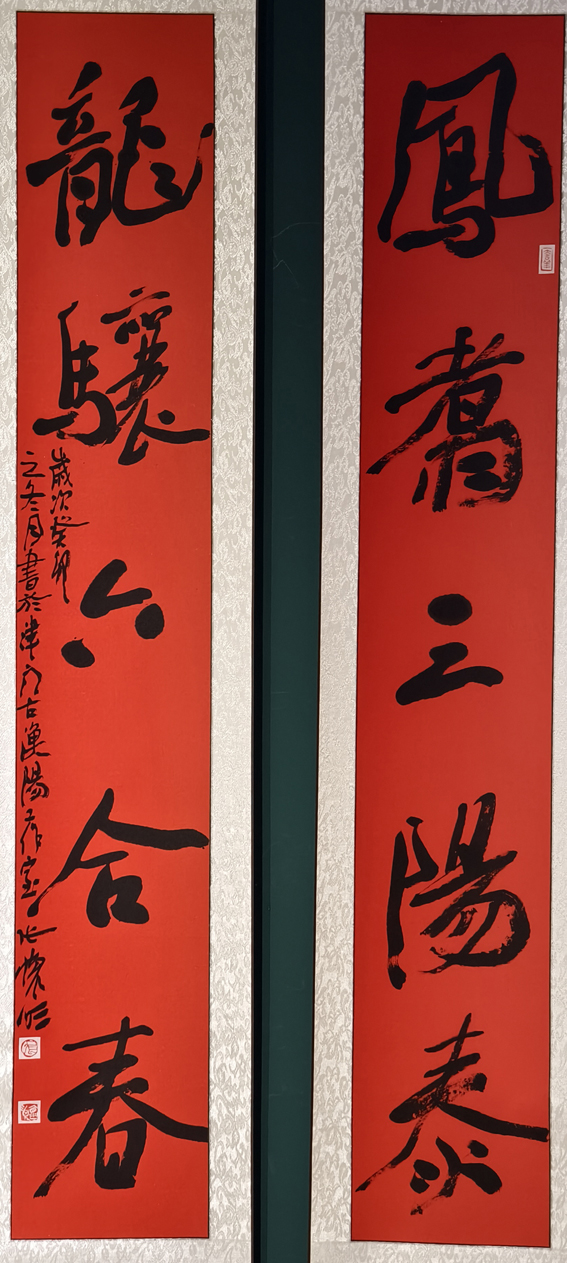 鳳翥三陽泰
龍驤六合春
歲次癸卯
之冬月書於津門古漁陽